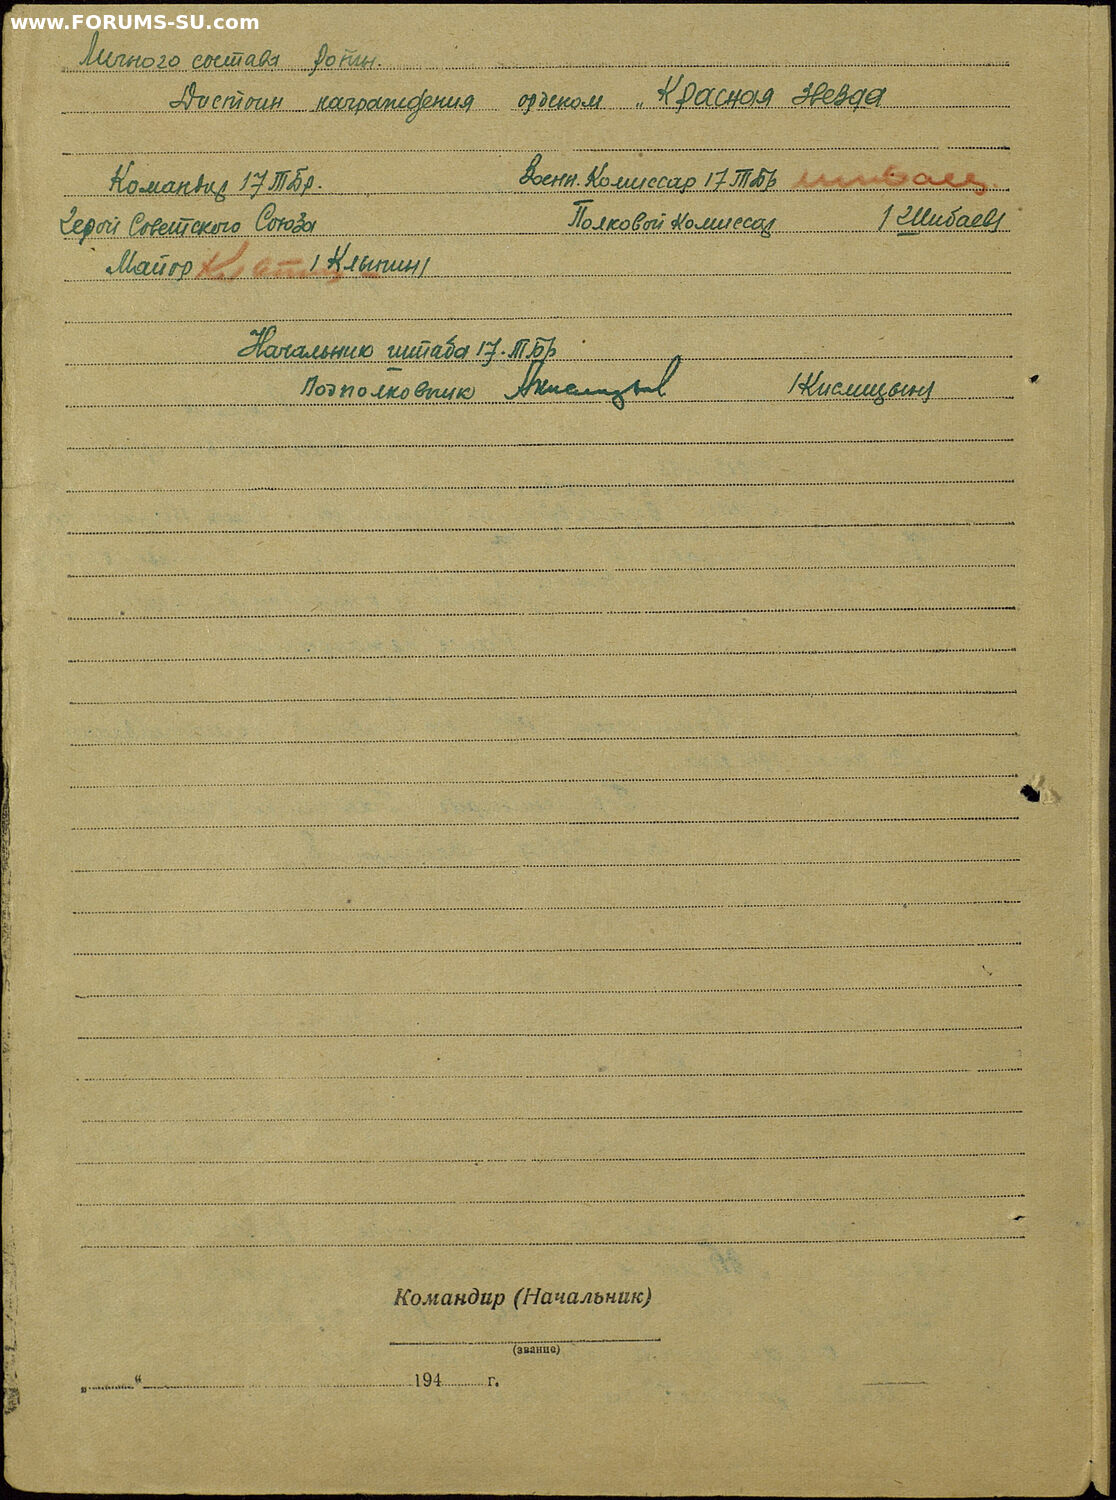 www.FORUMS-SU.com
Личного состава роты.
Достоин награждения орденом „Красная звезда
Командир 17 ТБр. Воен. Комиссар 17 ТБр Шибаев.
Герой Советского Союза Полковой Комиссар /Шибаев/
Майор Клыпин /Клыпин/
Начальник штаба 17. ТБр
Подполковник /Кислицын/
Командир (Начальник)
(звание)
„ “ 194 г.